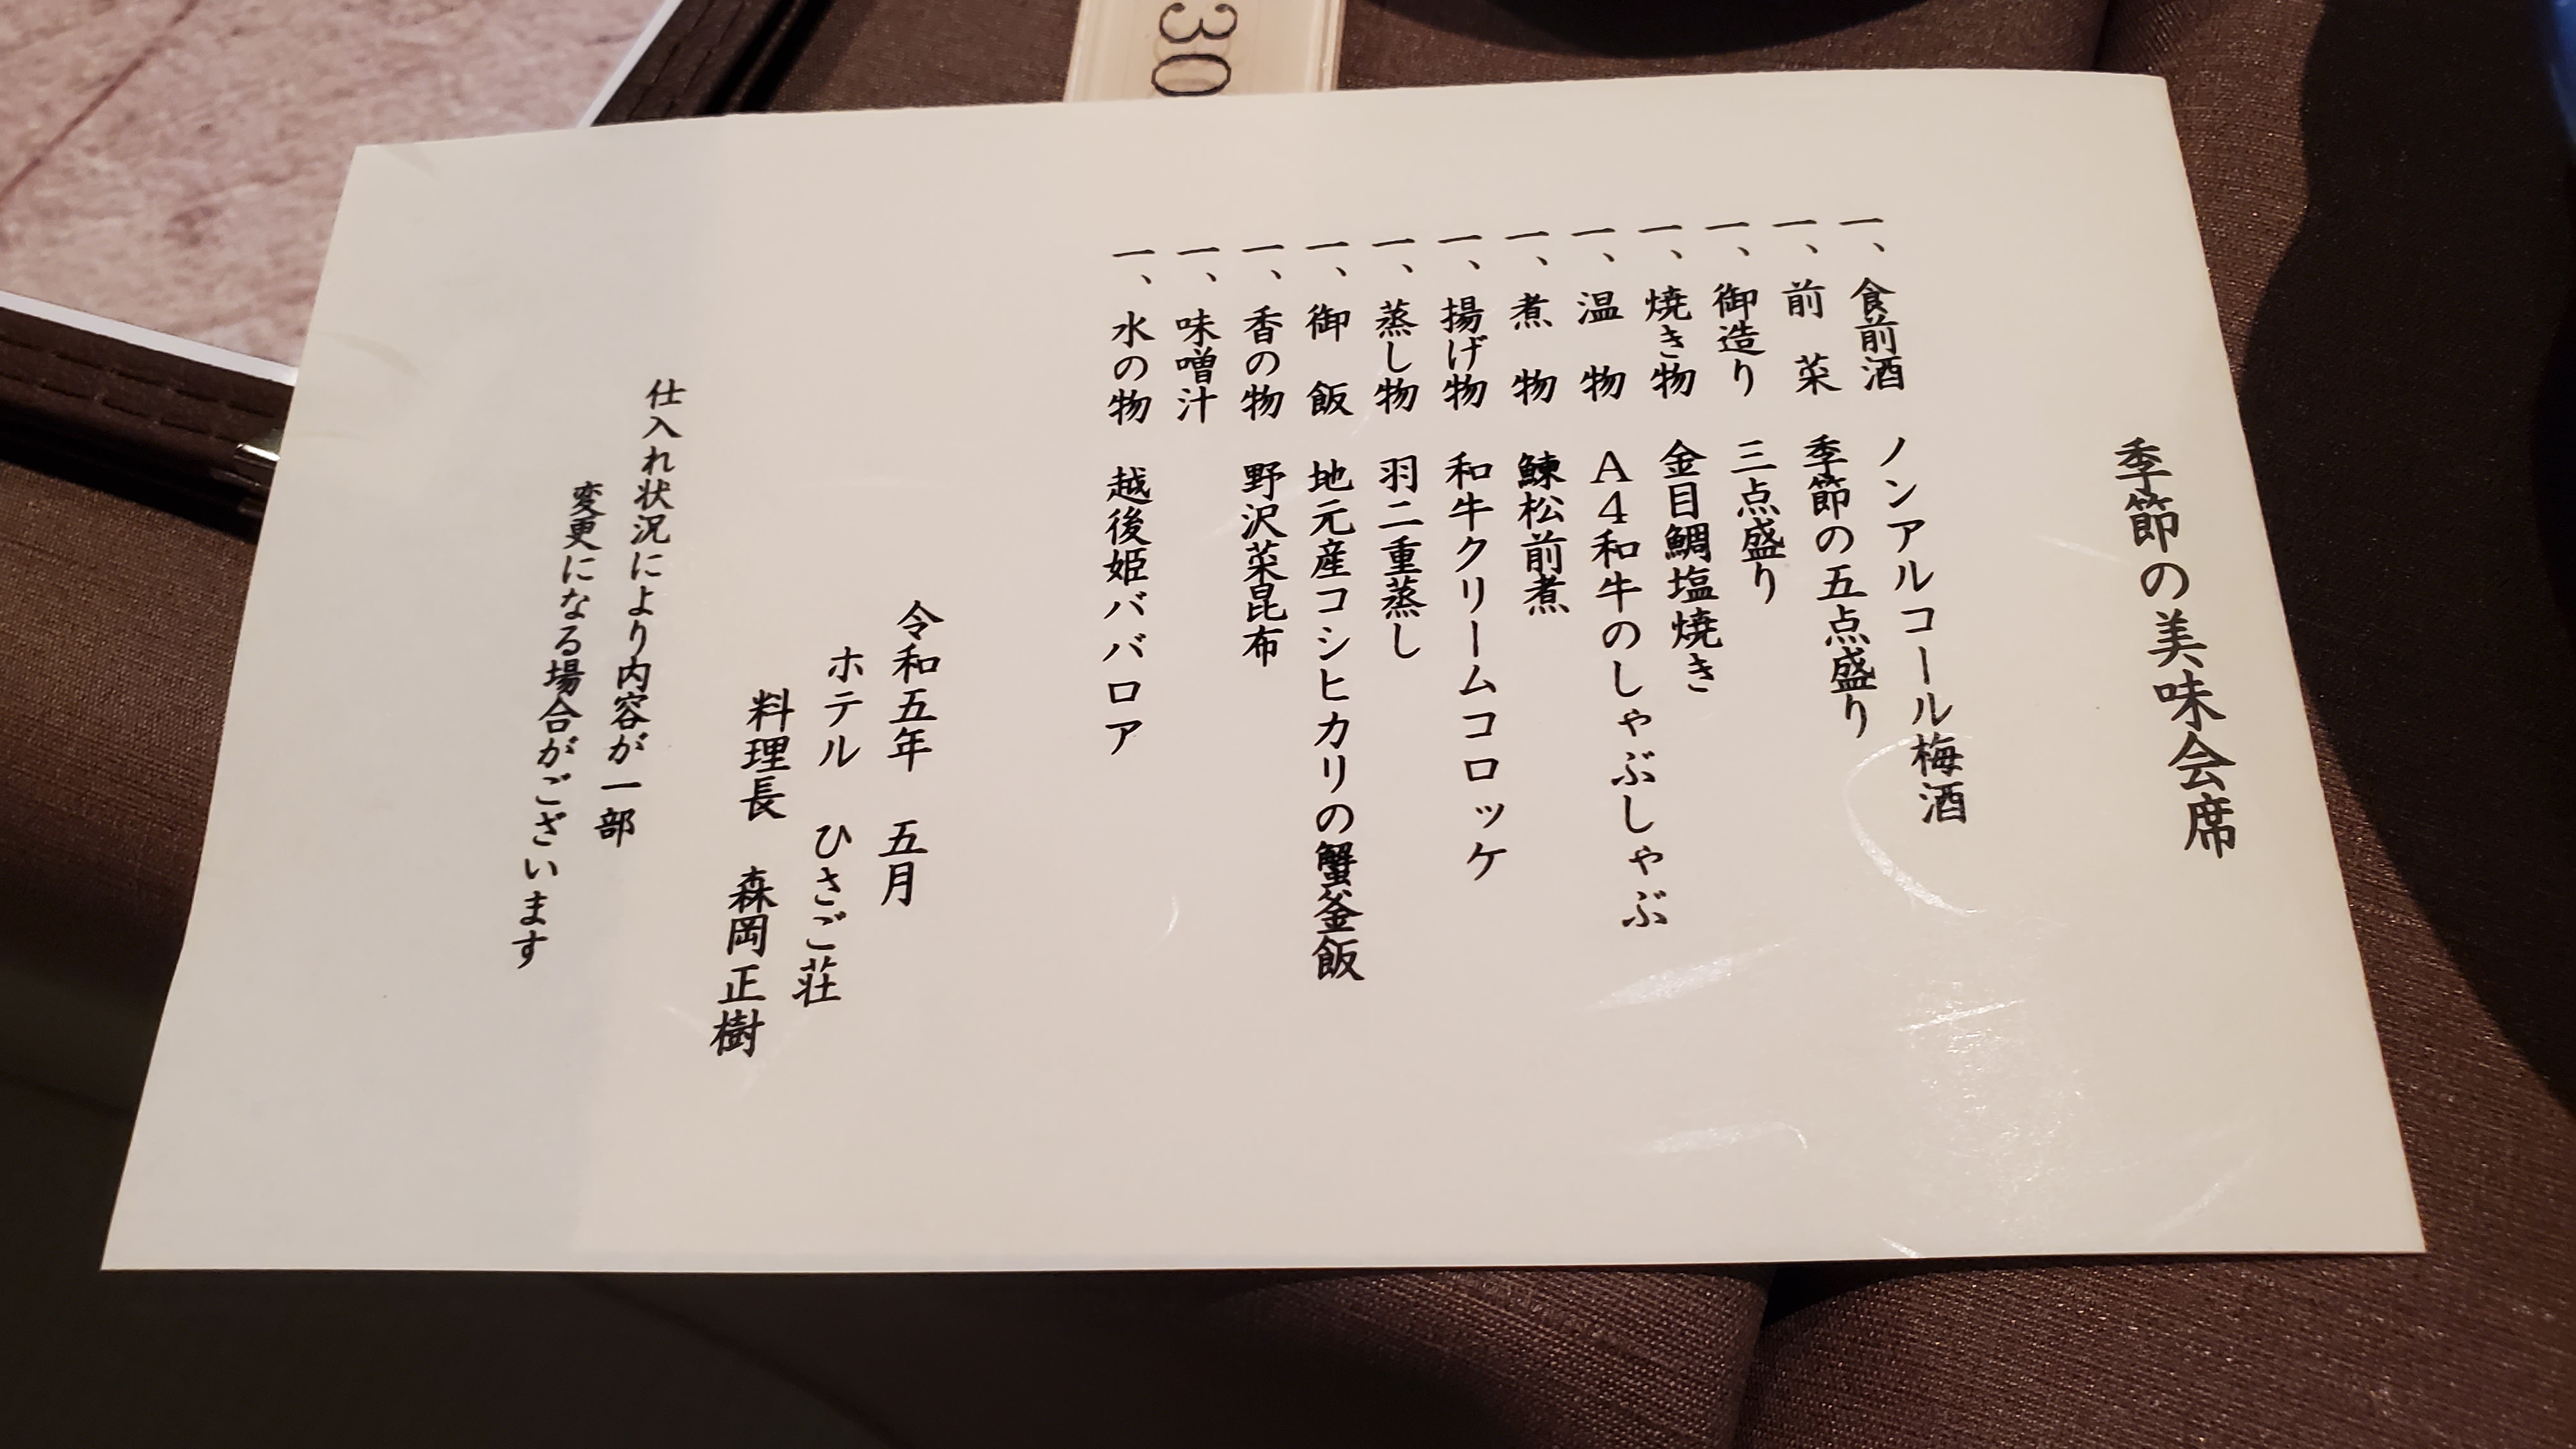 季節の美味会席
一、食前酒 ノンアルコール梅酒
一、前菜 季節の五点盛り
一、御造り 三点盛り
一、焼き物 金目鯛塩焼き
一、温物 A4和牛のしゃぶしゃぶ
一、煮物 鰊松前煮
一、揚げ物 和牛クリームコロッケ
一、蒸し物 羽二重蒸し
一、御飯 地元産コシヒカリの蟹釜飯
一、香の物 野沢菜昆布
一、味噌汁
一、水の物 越後姫ババロア
令和五年 五月
ホテル ひさご荘
料理長 森岡正樹
仕入れ状況により内容が一部
変更になる場合がございます
30